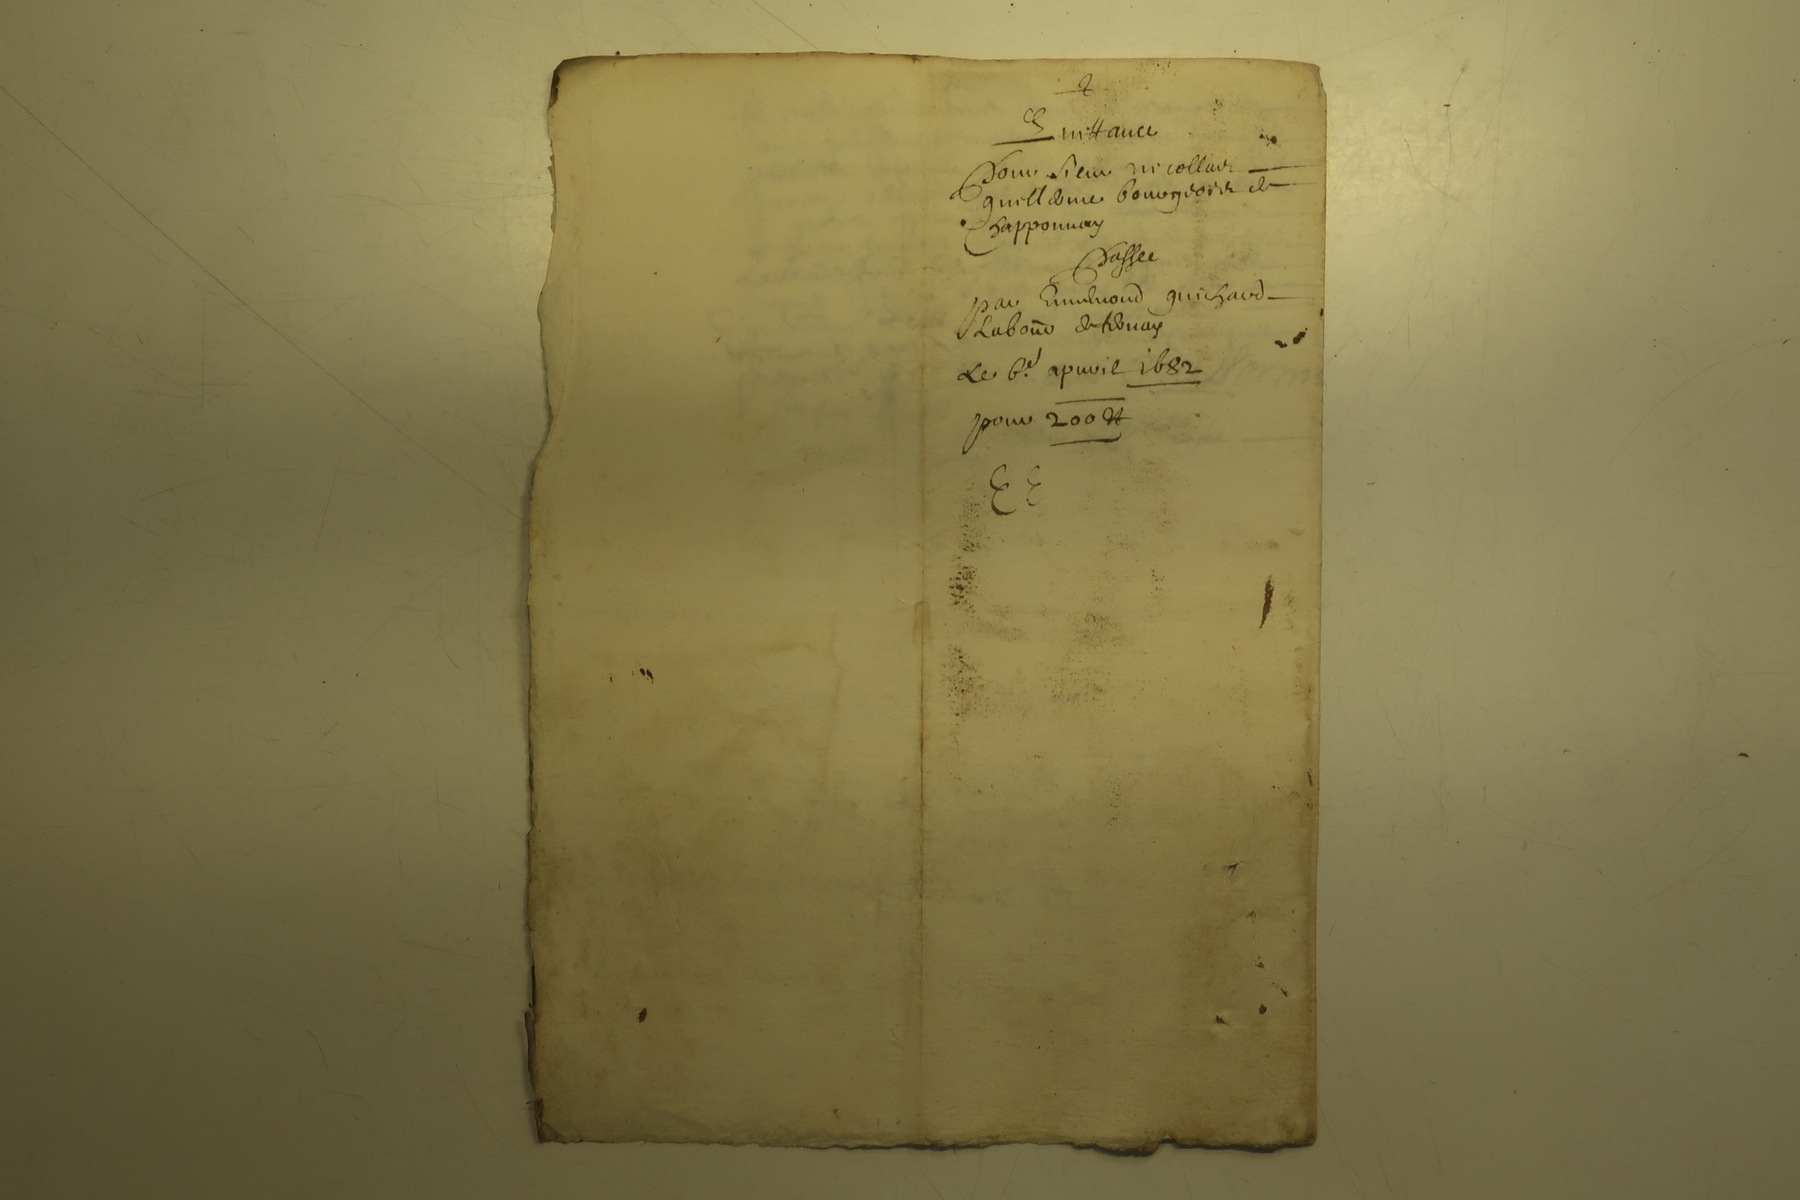 2
Quittance
Pour Sieur nicollas
guilldeme bourgeois de
Chapponnay
Passee
par Enemond guichard
Labour de
Le 6e apvril 1682
pour 200 ₶